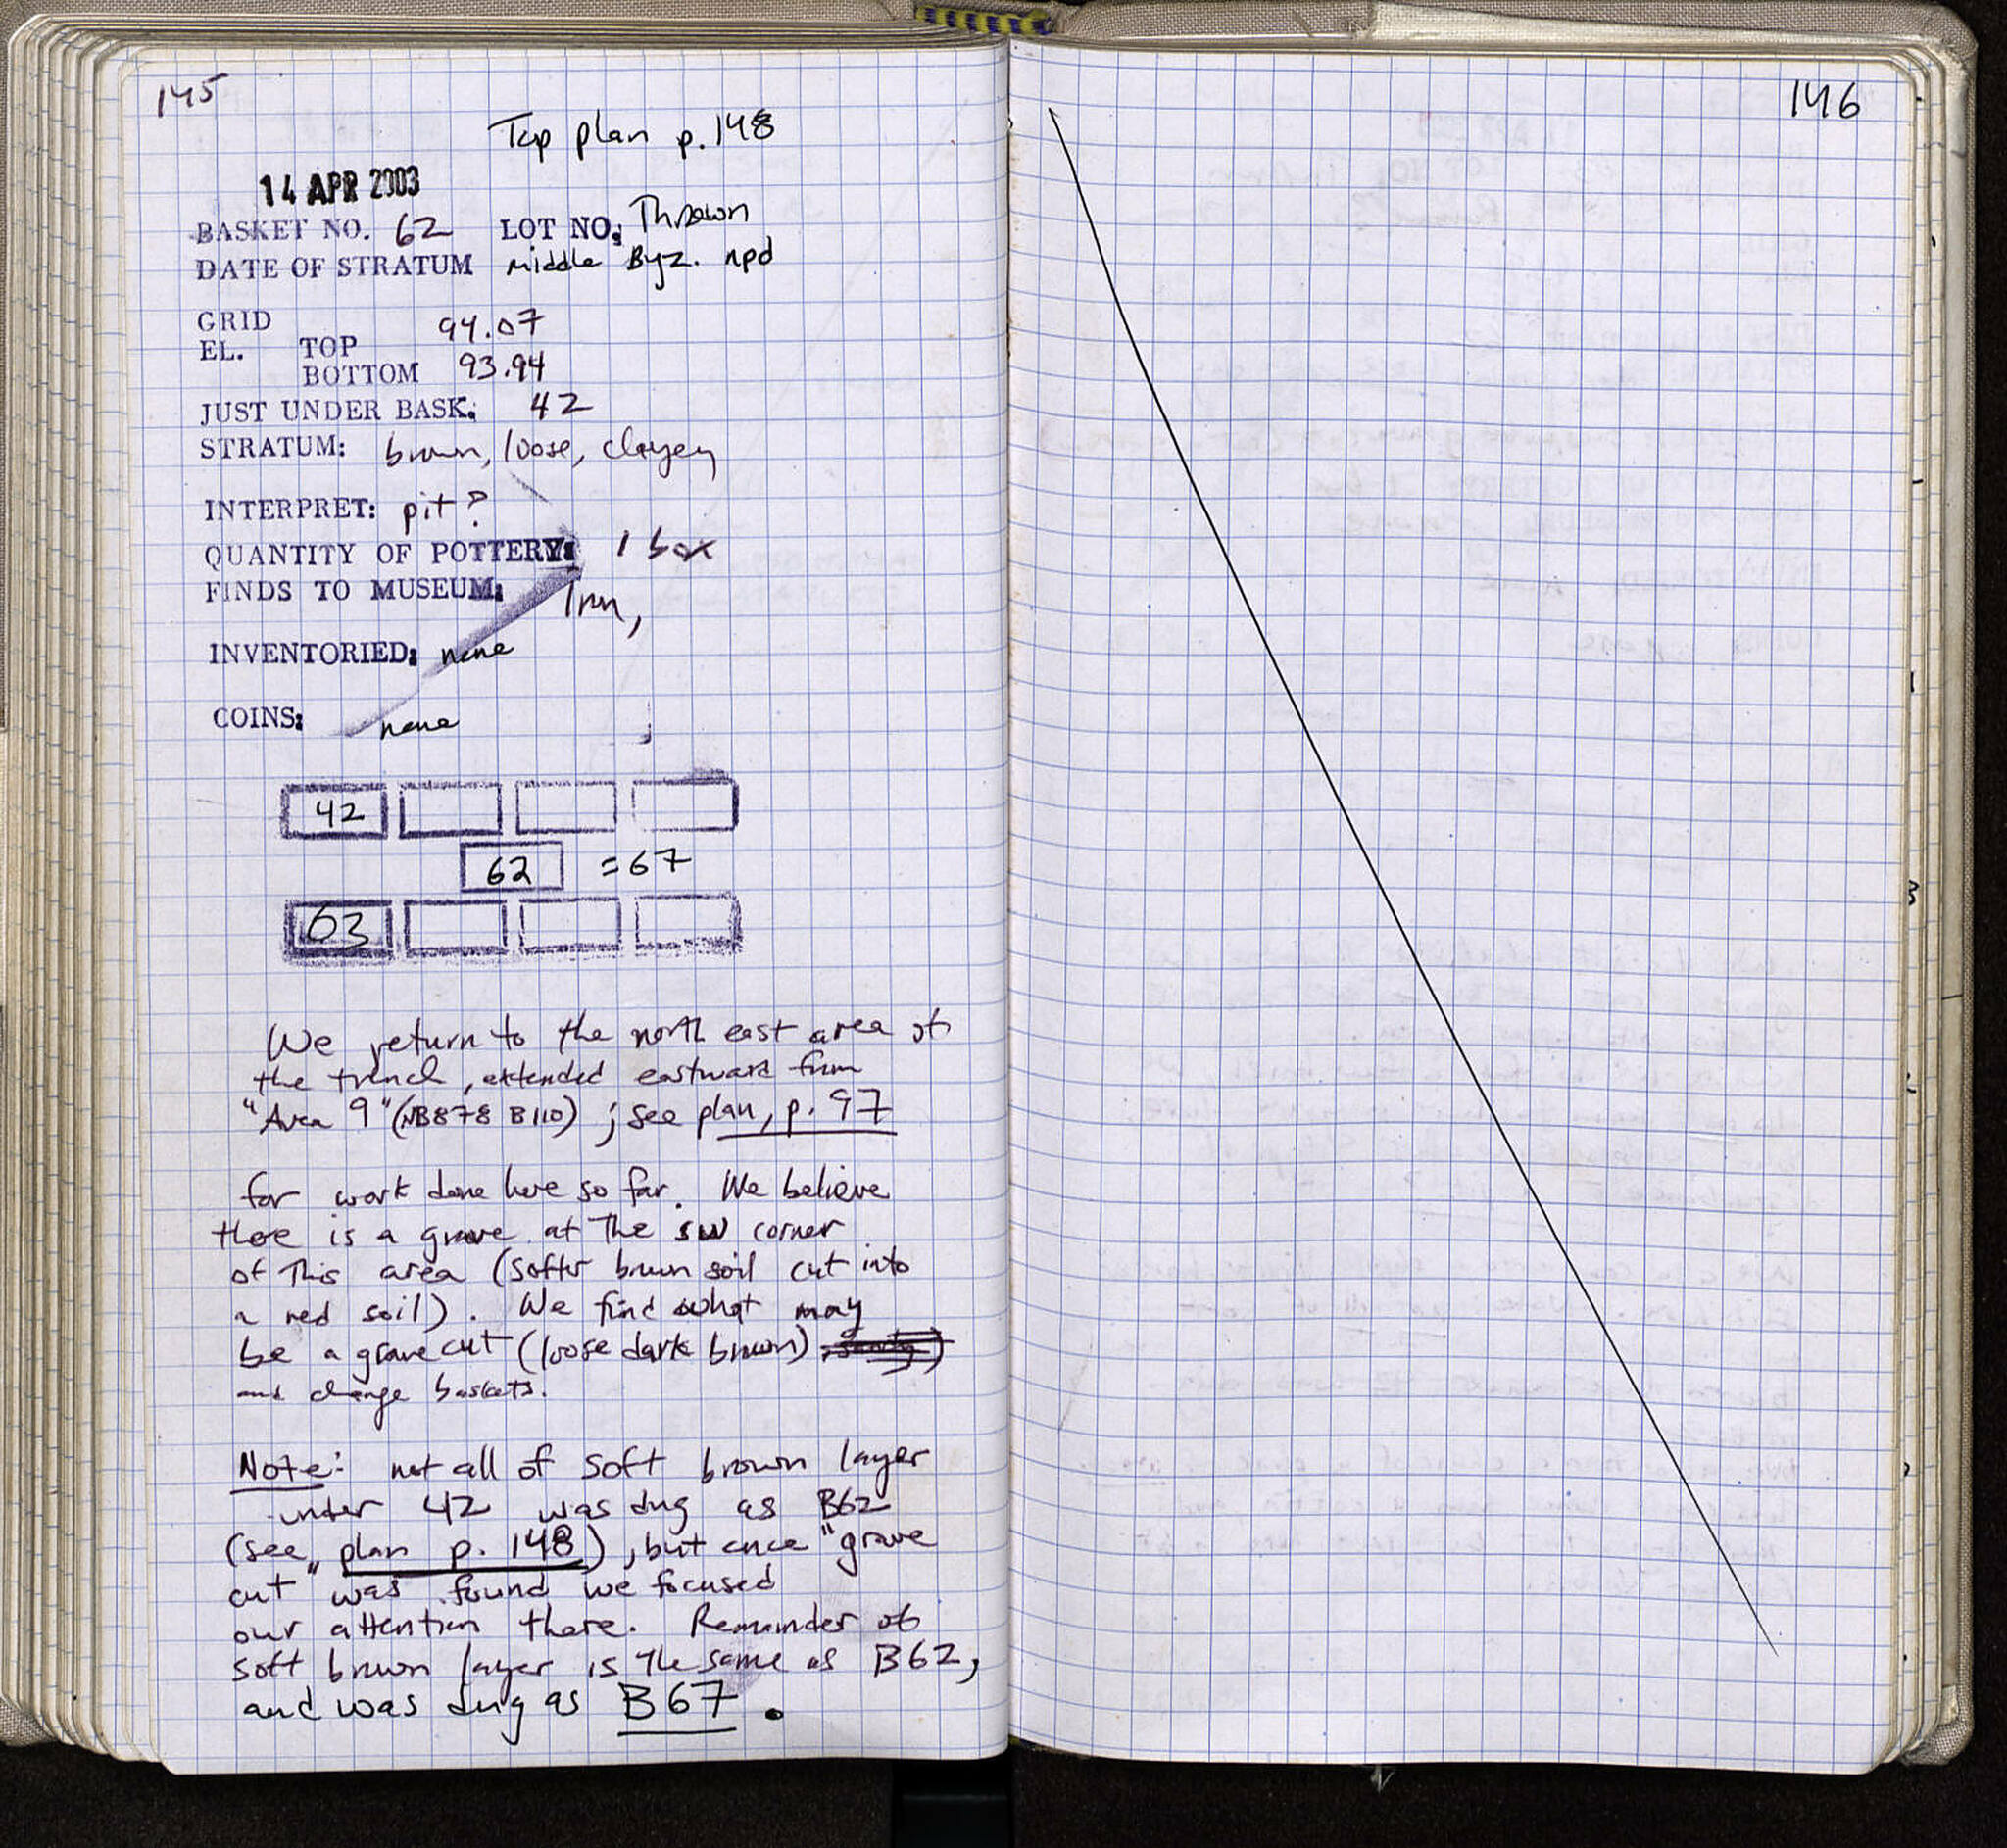 145
Top plan p. 148
14 APR 2003
BASKET NO. 62 LOT NO: Thrown
DATE OF STRATUM Middle Byz. npd
GRID
EL. TOP 94.07
BOTTOM 93.94
JUST UNDER BASK: 42
STRATUM: brown, loose, clayey
INTERPRET: pit?
QUANTITY OF POTTERY: 1 box
FINDS TO MUSEUM: Iron,
INVENTORIED: none
COINS: none
42
62 =67
63
We return to the north east area of
the trench, extended eastward from
"Area 9" (NB878 B110) ; see plan, p. 97
for work done here so far. We believe
there is a grave at the SW corner
of this area (softer brown soil cut into
a red soil). We find what may
be a grave cut (loose dark brown)
and change baskets.
Note: not all of soft brown layer
under 42 was dug as B62
(see plan p. 148), but once "grave
cut" was found we focused
our attention there. Remainder of
soft brown layer is the same as B62,
and was dug as B67.
146